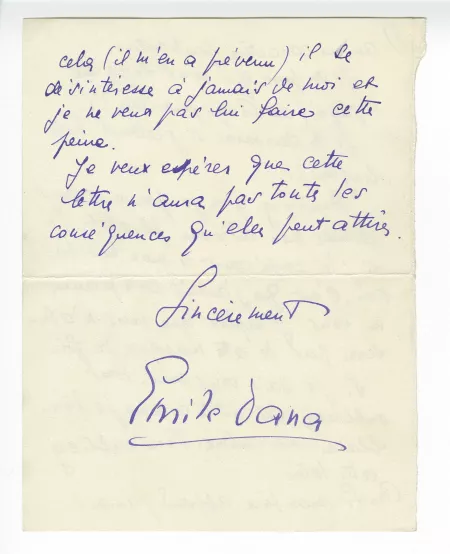 cela (il m'en a prévenu) il se
désintéresse à jamais de moi et
je ne veux pas lui faire cette
peine.
Je veux espérer que cette
lettre n'aura pas toutes les
conséquences qu'elle peut attirer.
Sincèrement
Emile Dana